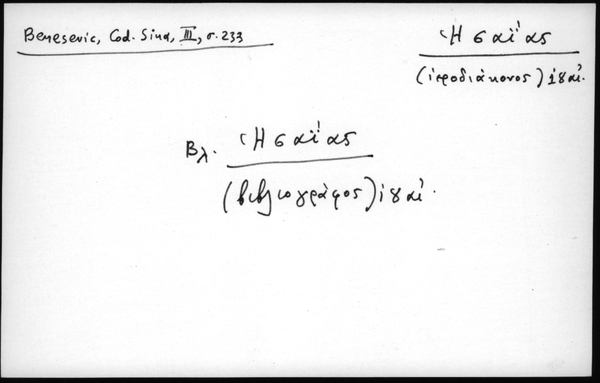 Benesevic, Cod. Sina, III, σ. 233
Ἡσαΐας
(ἱεροδιάκονος) ις αἰ.
Βλ. Ἡσαΐας
(βιβλιογράφος) ις αἰ.